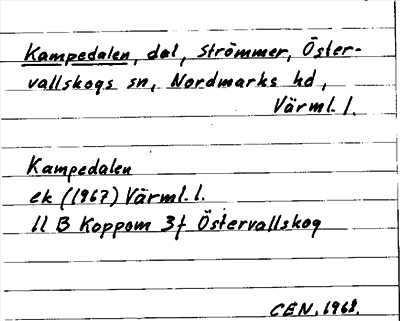 Kampedalen, dal, Strömmer, Öster-
vallskogs sn, Nordmarks hd,
Värml. l.
Kampedalen
ek (1967) Värml. l.
11 B Koppom 3f Östervallskog
CEN. 1968.